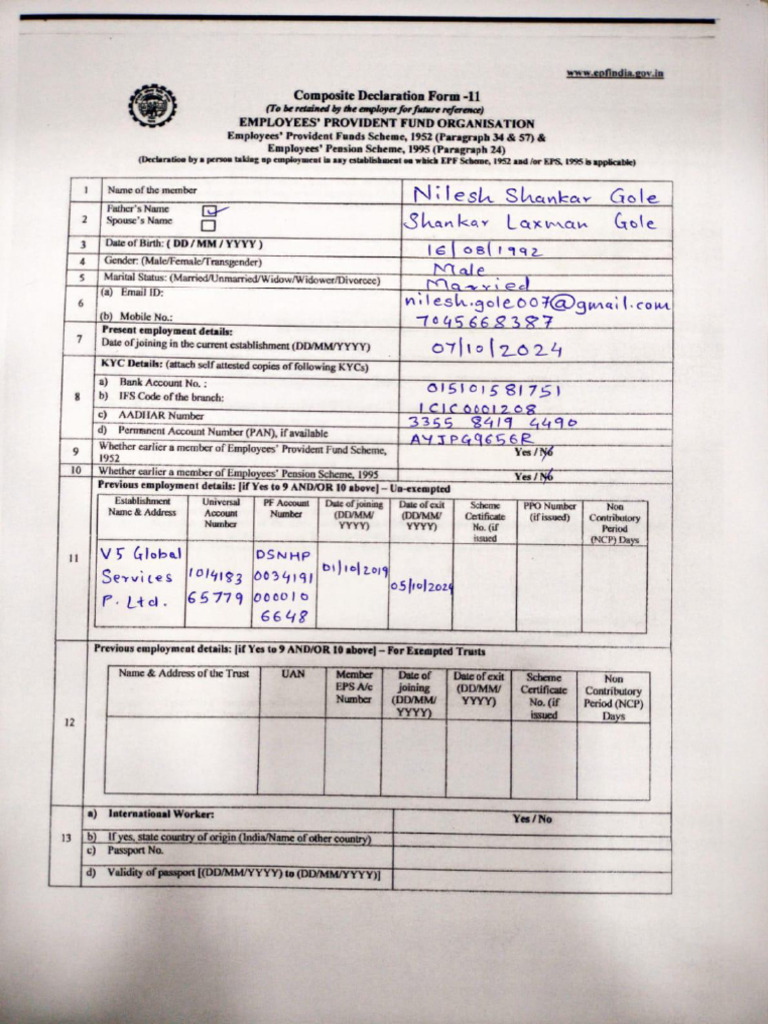 www.epfindia.gov.in
Composite Declaration Form -11
(To be retained by the employer for future reference)
EMPLOYEES' PROVIDENT FUND ORGANISATION
Employees' Provident Funds Scheme, 1952 (Paragraph 34 & 57) &
Employees' Pension Scheme, 1995 (Paragraph 24)
(Declaration by a person taking up employment in any establishment on which EPF Scheme, 1952 and /or EPS, 1995 is applicable)
1 Name of the member Nilesh Shankar Gole
2 Father's Name Shankar Laxman Gole
Spouse's Name
3 Date of Birth: ( DD / MM / YYYY ) 16/08/1992
4 Gender: (Male/Female/Transgender) Male
5 Marital Status: (Married/Unmarried/Widow/Widower/Divorcee) Married
6 (a) Email ID: nilesh.gole007@gmail.com
(b) Mobile No.: 7045668387
7 Present employment details:
Date of joining in the current establishment (DD/MM/YYYY) 07/10/2024
8 KYC Details: (attach self attested copies of following KYCs)
a) Bank Account No. : 015101581751
b) IFS Code of the branch: ICIC0001208
c) AADHAR Number 3355 8419 4490
d) Permanent Account Number (PAN), if available AYJPG9656R
9 Whether earlier a member of Employees' Provident Fund Scheme, 1952 Yes / No
10 Whether earlier a member of Employees' Pension Scheme, 1995 Yes / No
11 Previous employment details: [if Yes to 9 AND/OR 10 above] – Un-exempted
Establishment Name & Address Universal Account Number PF Account Number Date of joining (DD/MM/YYYY) Date of exit (DD/MM/YYYY) Scheme Certificate No. (if issued PPO Number (if issued) Non Contributory Period (NCP) Days
V5 Global Services P. Ltd. 1014183 65779 DSNHP 0034191 000010 6648 01/10/2019 05/10/2024
12 Previous employment details: [if Yes to 9 AND/OR 10 above] – For Exempted Trusts
Name & Address of the Trust UAN Member EPS A/c Number Date of joining (DD/MM/YYYY) Date of exit (DD/MM/YYYY) Scheme Certificate No. (if issued Non Contributory Period (NCP) Days
13 a) International Worker: Yes / No
b) If yes, state country of origin (India/Name of other country)
c) Passport No.
d) Validity of passport [(DD/MM/YYYY) to (DD/MM/YYYY)]